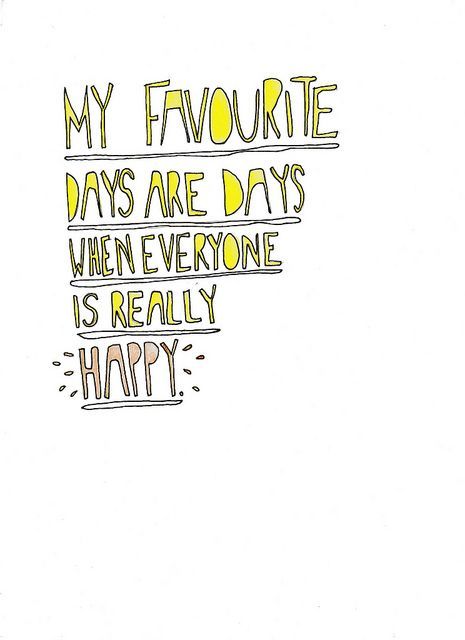 MY FAVOURITE
DAYS ARE DAYS
WHEN EVERYONE
IS REALLY
HAPPY.